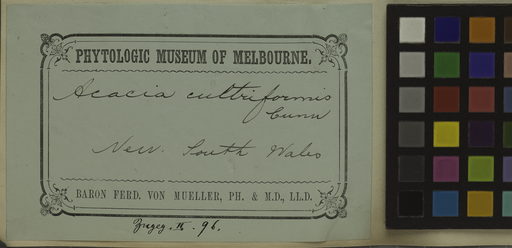 PHYTOLOGIC MUSEUM OF MELBOURNE.
Acacia cultriformis
Cunn
New South Wales
BARON FERD. VON MUELLER, PH. & M.D., LL.D.
96.